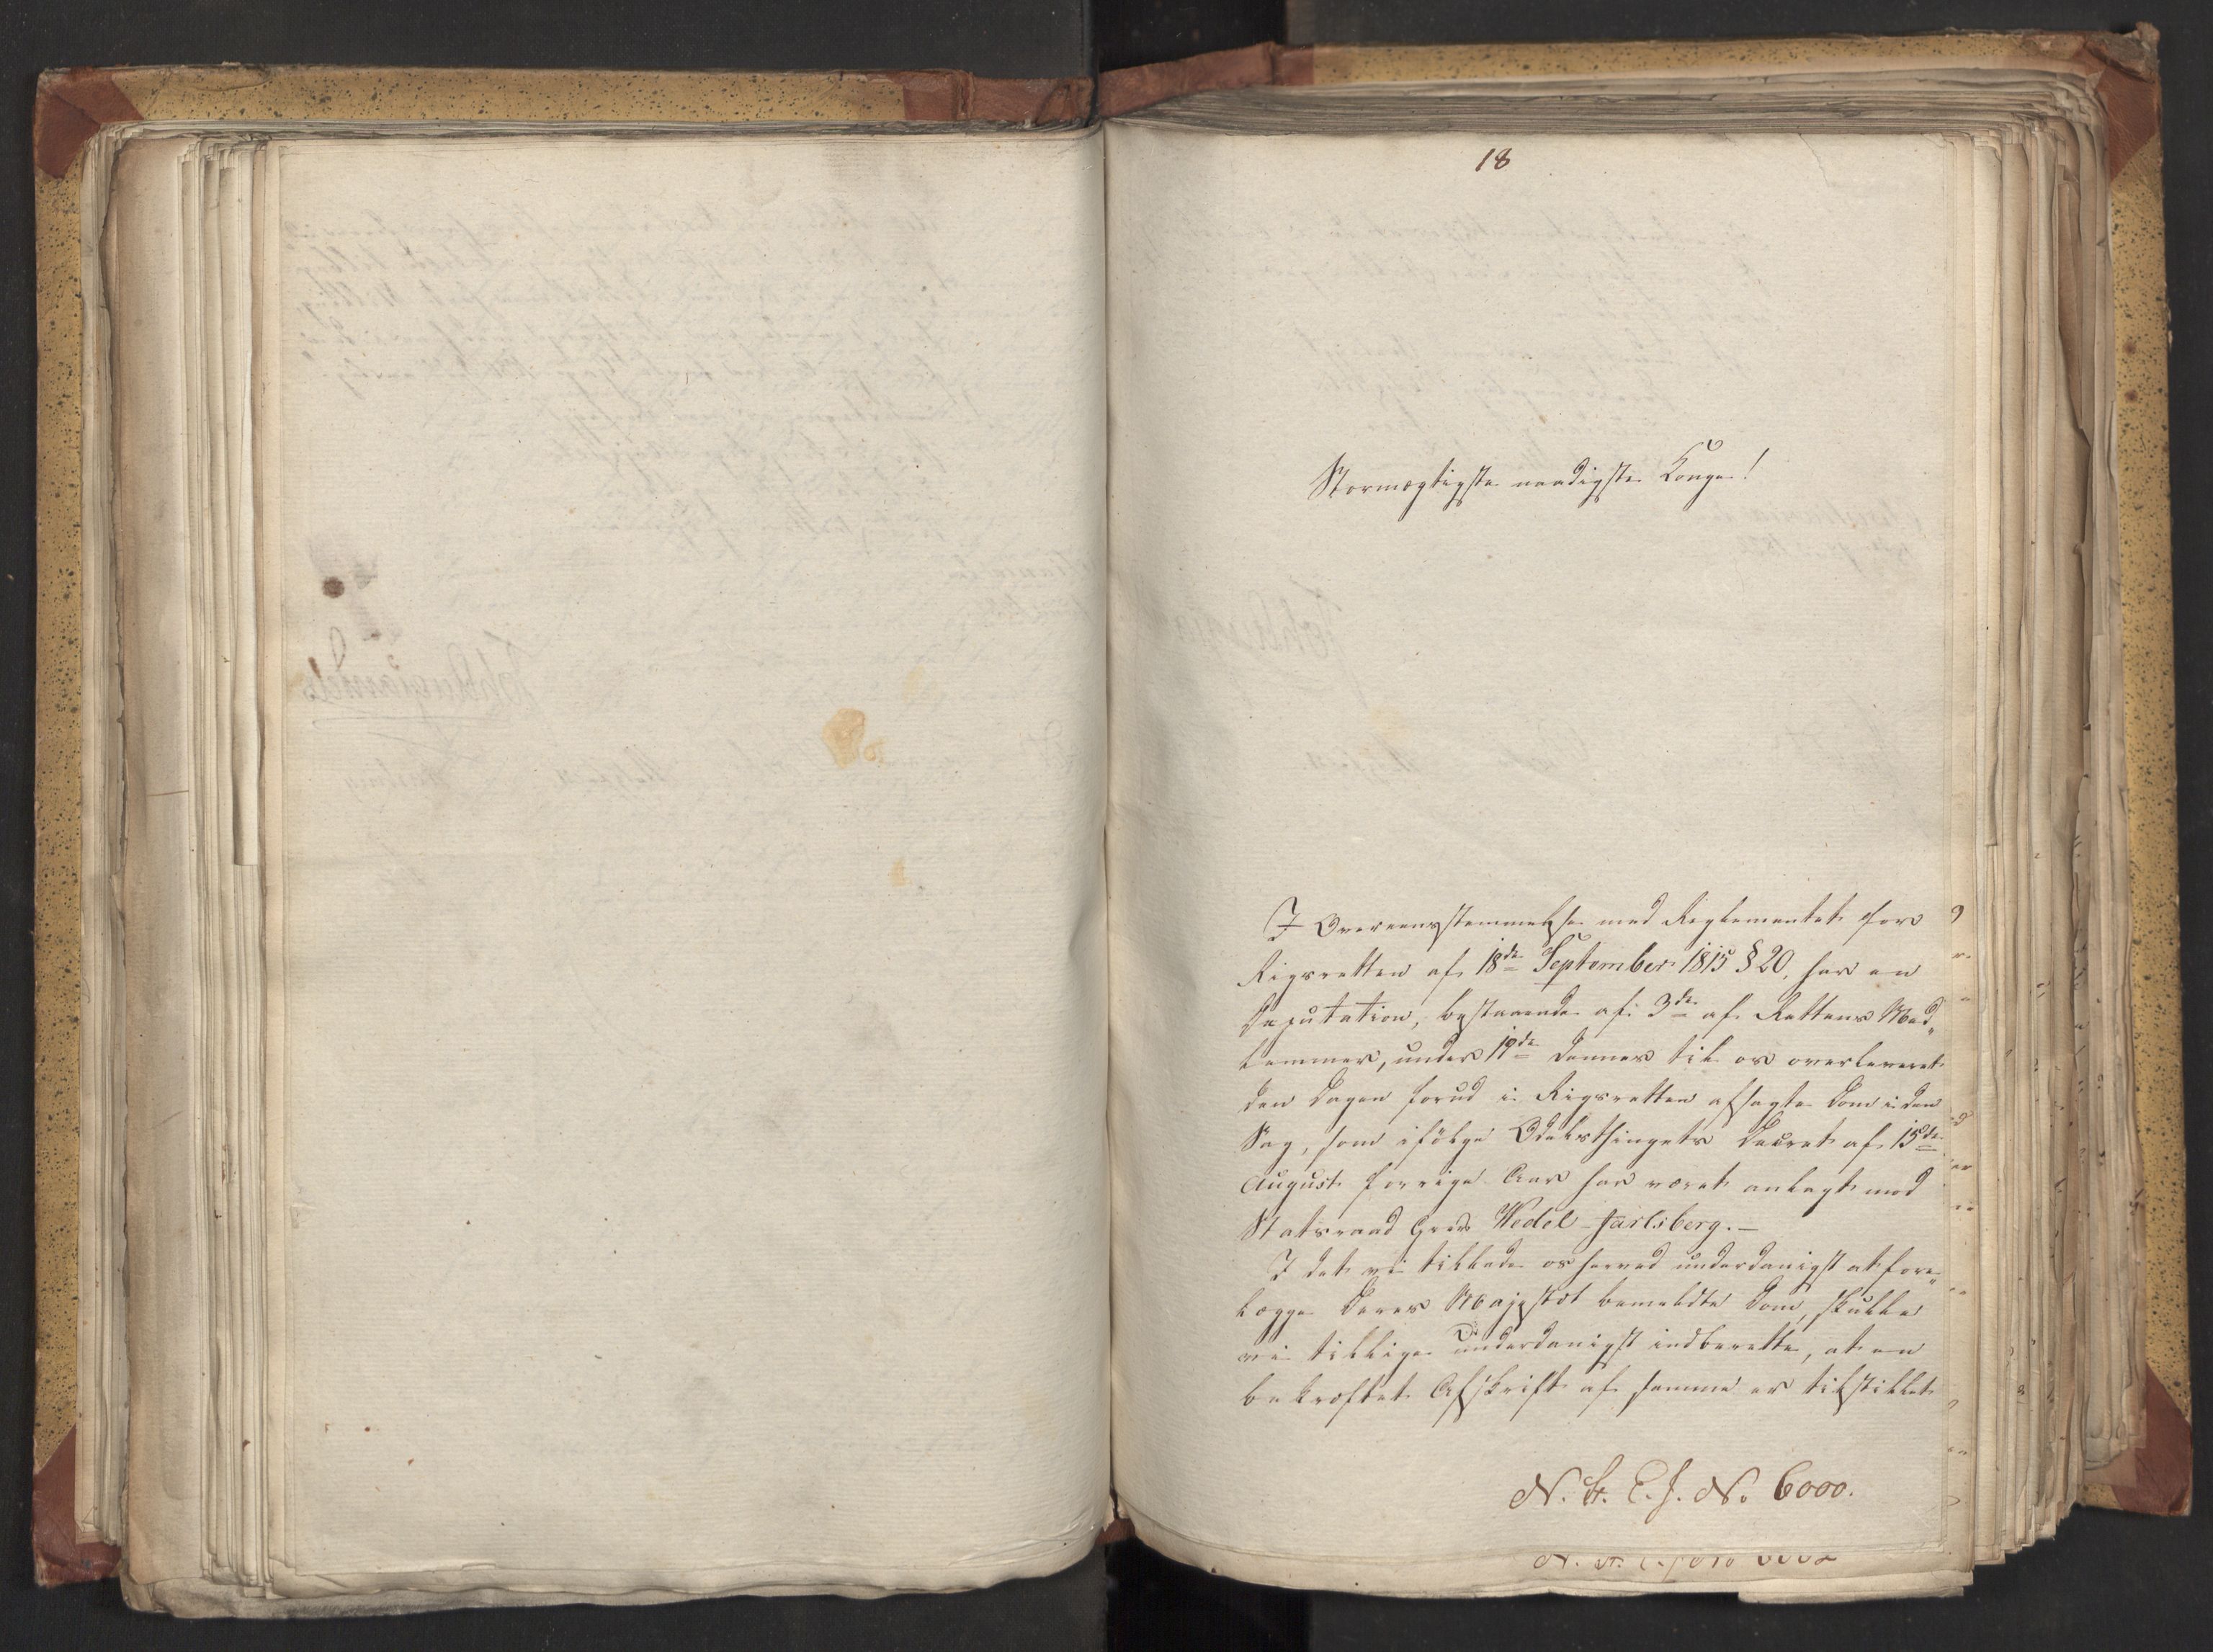 18
Stormægtigste naadigste Konge!
I Overeensstemmelse med Reglementet for
Rigsretten af 18de September 1815 § 20, har en
Deputation, bestaaende af 3de af Rettens Med„
lemmer, under 19de dennes til os overleveret
den Dagen forud i Rigsretten afsagte Dom i den
Sag, som ifölge Odelsthingets Decret af 15de
August forrige Aar har været anlagt mod
Statsraad Greve Wedel-Jarlsberg.-
I det vi tillade os herved underdanigst at fore„
lægge Deres Majestæt bemeldte Dom, skulle
vi tillige underdanigst indberette, at en
bekræftet Afskrift af samme er tilstillet
N. St. E. J. No 6000.